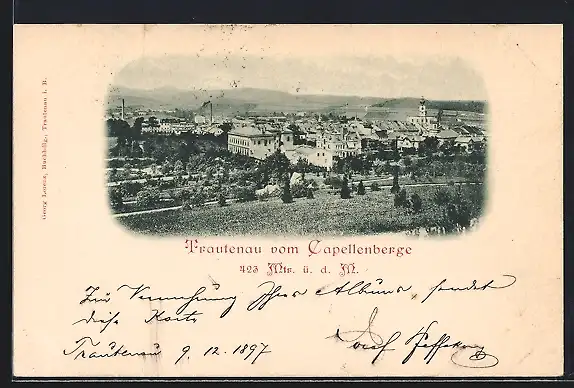 Trautenau vom Capellenberge
423 Mtr. ü. d. M.
Georg Lorenz, Buchhdlg., Trautenau i. B.
Zur Vermehrung Ihres Albums sendet
diese Karte
Trautenau 9. 12. 1897 Josef